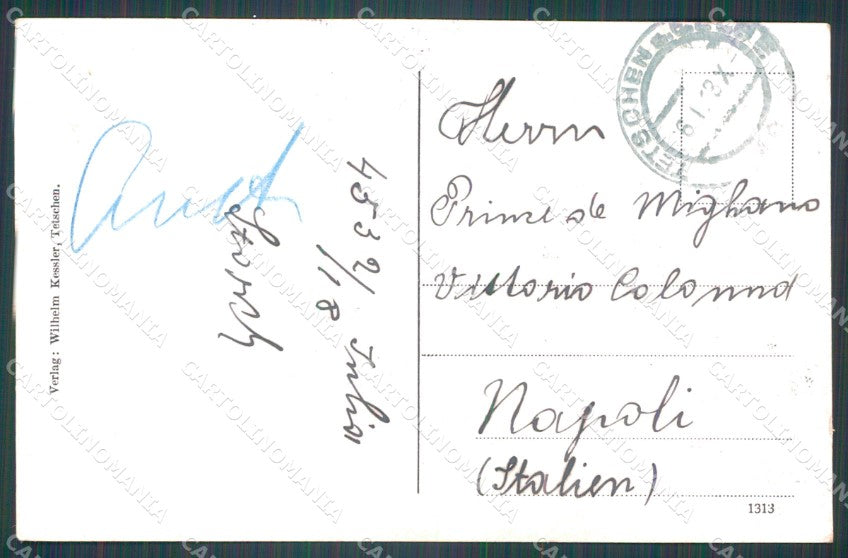 Verlag: Wilhelm Kessler, Tetschen.
Storch
4539/
18
Julia
TETSCHEN
Herrn
Prince de Migliano
Vittorio Colonna
Napoli
(Italien)
1313
CARTOLINOMANIA